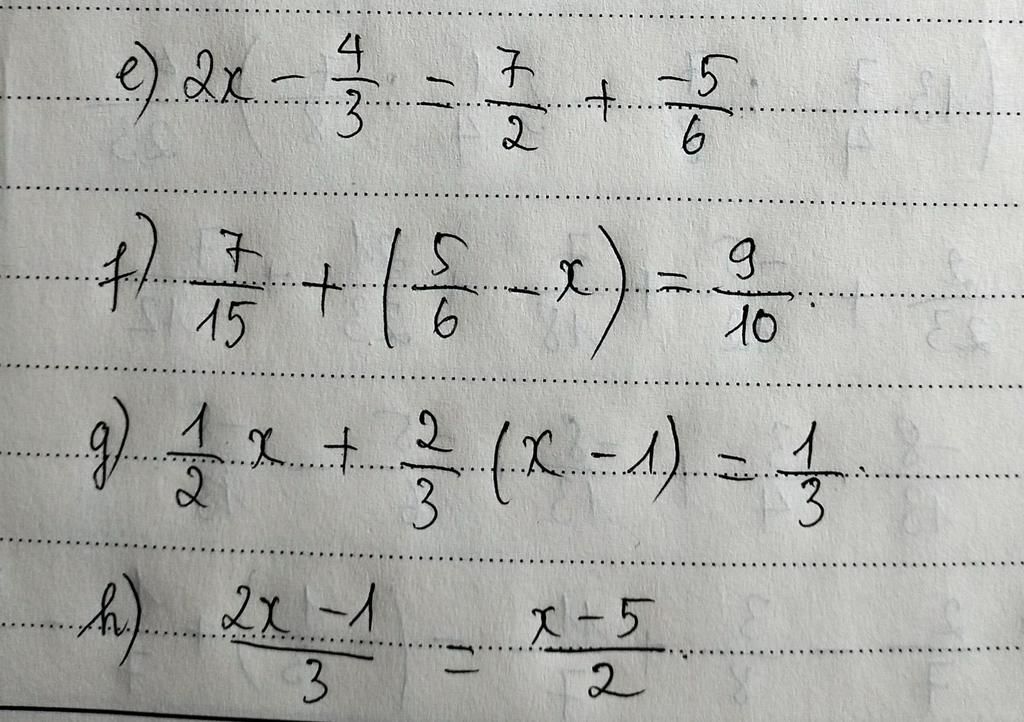 e) 2x - 4/3 = 7/2 + -5/6
f) 7/15 + (5/6 - x) = 9/10.
g) 1/2 x + 2/3 (x - 1) = 1/3.
h) 2x - 1/3 = x - 5/2.